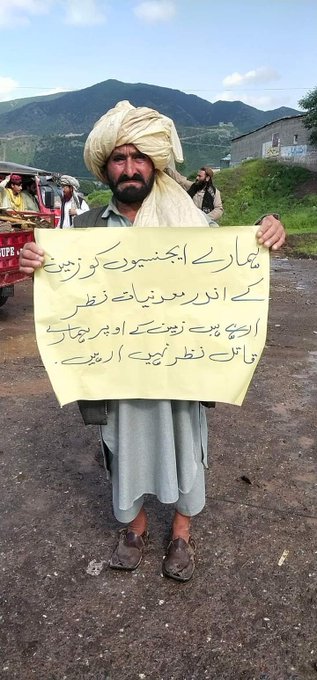 ہمارے ایجنسیوں کو زمین
کے اندر معدنیات نظر
ارہے ہیں زمین کے اوپر ہمارے
قاتل نظر نہیں ارہیں.
UPE